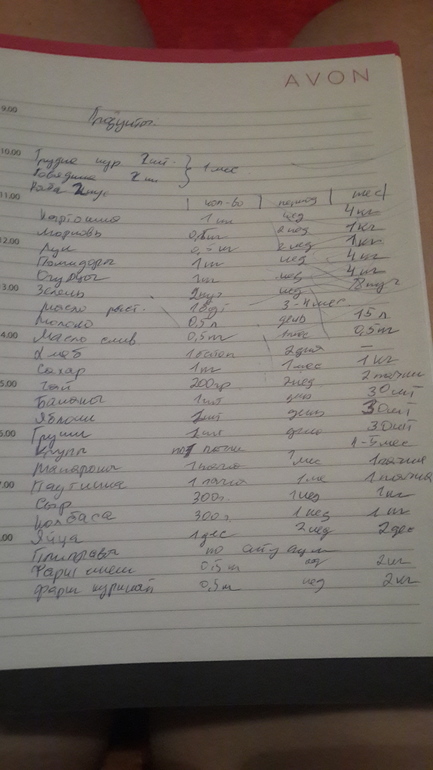 AVON
9.00
Продукты.
10.00
Грудка кур. 2шт.
Говядина 2 кг } 1 мес
11.00
кол-во период мес
Картошка 1 кг нед 4 кг
Морковь 0,5кг 2 нед 1кг
12.00
Лук 0,5 кг 2 нед 1кг
Помидоры 1 кг нед 4 кг
Огурцы 1кг нед 4 кг
Зелень 2пуч нед 8 пуч
Масло раст. 1бут 3-4 мес
Молоко 0,5 л день 15 л
4.00
Масло слив 0,5кг 1 мес 0,5кг
Хлеб 2 дня —
Сахар 1кг 1 мес 1 кг
5.00
Чай 200гр 2нед 2 пачки
Бананы 1шт день 30 шт
Яблоки 1шт день 30шт
Груши 1шт день 30шт
Крупы по1 пачке 4-5 мес
Макароны 1 пачка мес 1 пачка
7.00
Паутинка 1 пачка 1 мес 1 пачка
Сыр 300г. 1 нед 1 кг
Колбаса 300г. 1 нед 1 кг
Яйца 1 дес 2 нед 2 дес
Приправы по
Фарш 0,5 кг нед 2 кг
Фарш куриный 0,5 кг нед 2 кг